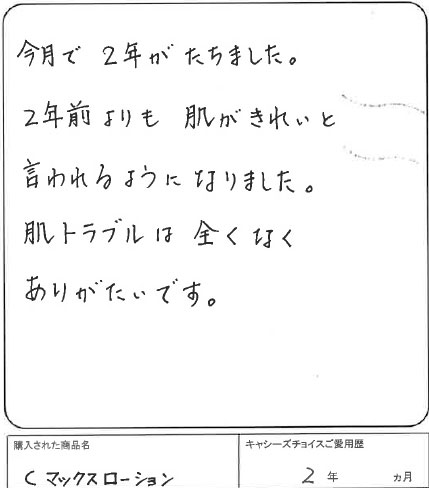 今月で 2年が たちました。
2年前よりも 肌がきれいと
言われるようになりました。
肌トラブルは 全くなく
ありがたいです。
購入された商品名
キャシーズチョイスご愛用歴
C マックスローション
2 年 ヵ月